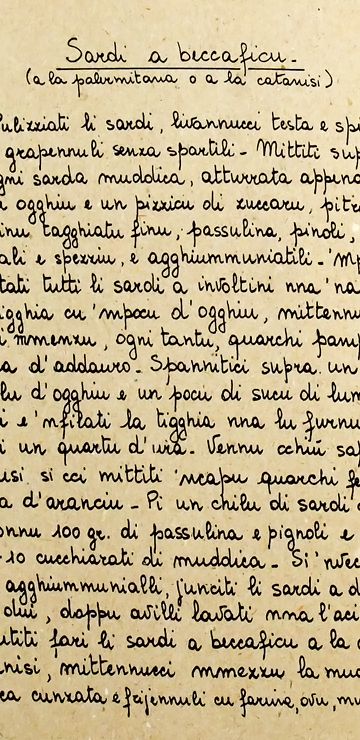 Sardi a beccaficu -
(a la palermitana o a la catanisi)
ulizziati li sardi, livannucci testa e spi
grapennuli senza spartili - Mittiti sup
gni sarda muddica, atturrata appena
i ogghiu e un pizzicu di zuccaru, pitr
inu tagghiatu finu, passulina, pinoli,
ali e spezziu, e agghiummuniatili - 'Mp
tati tutti li sardi a involtini nna 'na
igghia cu 'mpocu d'ogghiu, mittennu
i mmenzu, ogni tantu, quarchi pamp
a d'addauro - Spannitici supra un
lu d'ogghiu e un pocu di sucu di lum
i e 'nfilati la tigghia nna lu furnu
i un quartu d'ura - Vennu cchiù sap
usi si cci mittiti 'ncapu quarchi fe
a d'aranciu - Pi un chilu di sardi c
onnu 100 gr. di passulina e pignoli e
-10 cucchiarati di muddica - Si 'nvec
agghiummunialli, junciti li sardi a d
dui, doppu avilli lavati nna l'aci
utiti fari li sardi a beccaficu a la c
anisi, mittennucci mmezzu la mud
ca cunzata e frijennuli cu farina, ovu, mu